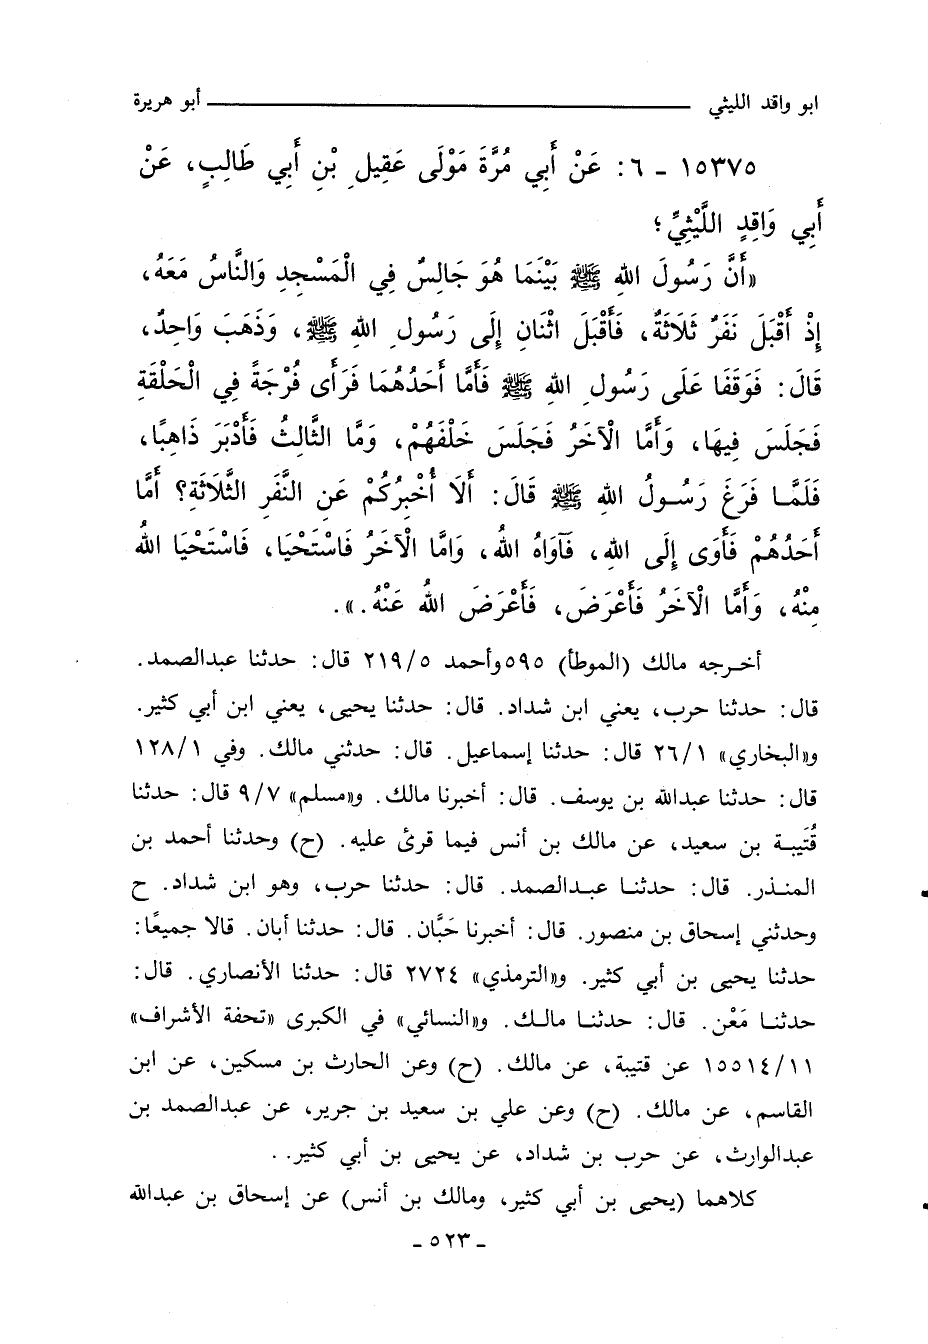 ابو واقد الليثي ــــــــ أبو هريرة
١٥٣٧٥ - ٦: عَنْ أَبِي مُرَّةَ مَوْلَى عَقِيلِ بْنِ أَبِي طَالِبٍ، عَنْ
أَبِي وَاقِدٍ اللَّيْثِيِّ؛
«أَنَّ رَسُولَ اللهِ ﷺ بَيْنَمَا هُوَ جَالِسٌ فِي الْمَسْجِدِ وَالنَّاسُ مَعَهُ،
إِذْ أَقْبَلَ نَفَرٌ ثَلَاثَةٌ، فَأَقْبَلَ اثْنَانِ إِلَى رَسُولِ اللهِ ﷺ، وَذَهَبَ وَاحِدٌ،
قَالَ: فَوَقَفَا عَلَى رَسُولِ اللهِ ﷺ فَأَمَّا أَحَدُهُمَا فَرَأَى فُرْجَةً فِي الْحَلْقَةِ
فَجَلَسَ فِيهَا، وَأَمَّا الْآخَرُ فَجَلَسَ خَلْفَهُمْ، وَمَّا الثَّالِثُ فَأَدْبَرَ ذَاهِبًا،
فَلَمَّا فَرَغَ رَسُولُ اللهِ ﷺ قَالَ: أَلَا أُخْبِرُكُمْ عَنِ النَّفَرِ الثَّلَاثَةِ؟ أَمَّا
أَحَدُهُمْ فَأَوَى إِلَى اللهِ، فَآوَاهُ اللهُ، وَامَّا الْآخَرُ فَاسْتَحْيَا، فَاسْتَحْيَا اللهُ
مِنْهُ، وَأَمَّا الْآخَرُ فَأَعْرَضَ، فَأَعْرَضَ اللهُ عَنْهُ.».
أخرجه مالك (الموطأ) ٥٩٥ وأحمد ٢١٩/٥ قال: حدثنا عبدالصمد.
قال: حدثنا حرب، يعني ابن شداد. قال: حدثنا يحيى، يعني ابن أبي كثير.
و«البخاري» ٢٦/١ قال: حدثنا إسماعيل. قال: حدثني مالك. وفي ١٢٨/١
قال: حدثنا عبدالله بن يوسف. قال: أخبرنا مالك. و«مسلم» ٩/٧ قال: حدثنا
قُتَيبة بن سعيد، عن مالك بن أنس فيما قرئ عليه. (ح) وحدثنا أحمد بن
المنذر. قال: حدثنا عبدالصمد. قال: حدثنا حرب، وهو ابن شداد. ح
وحدثني إسحاق بن منصور. قال: أخبرنا حَبَّان. قال: حدثنا أبان. قالا جميعًا:
حدثنا يحيى بن أبي كثير. و«الترمذي» ٢٧٢٤ قال: حدثنا الأنصاري. قال:
حدثنا مَعْن. قال: حدثنا مالك. و«النسائي» في الكبرى «تحفة الأشراف»
١٥٥١٤/١١ عن قتيبة، عن مالك. (ح) وعن الحارث بن مسكين، عن ابن
القاسم، عن مالك. (ح) وعن علي بن سعيد بن جرير، عن عبدالصمد بن
عبدالوارث، عن حرب بن شداد، عن يحيى بن أبي كثير..
كلاهما (يحيى بن أبي كثير، ومالك بن أنس) عن إسحاق بن عبدالله
- ٥٢٣ -